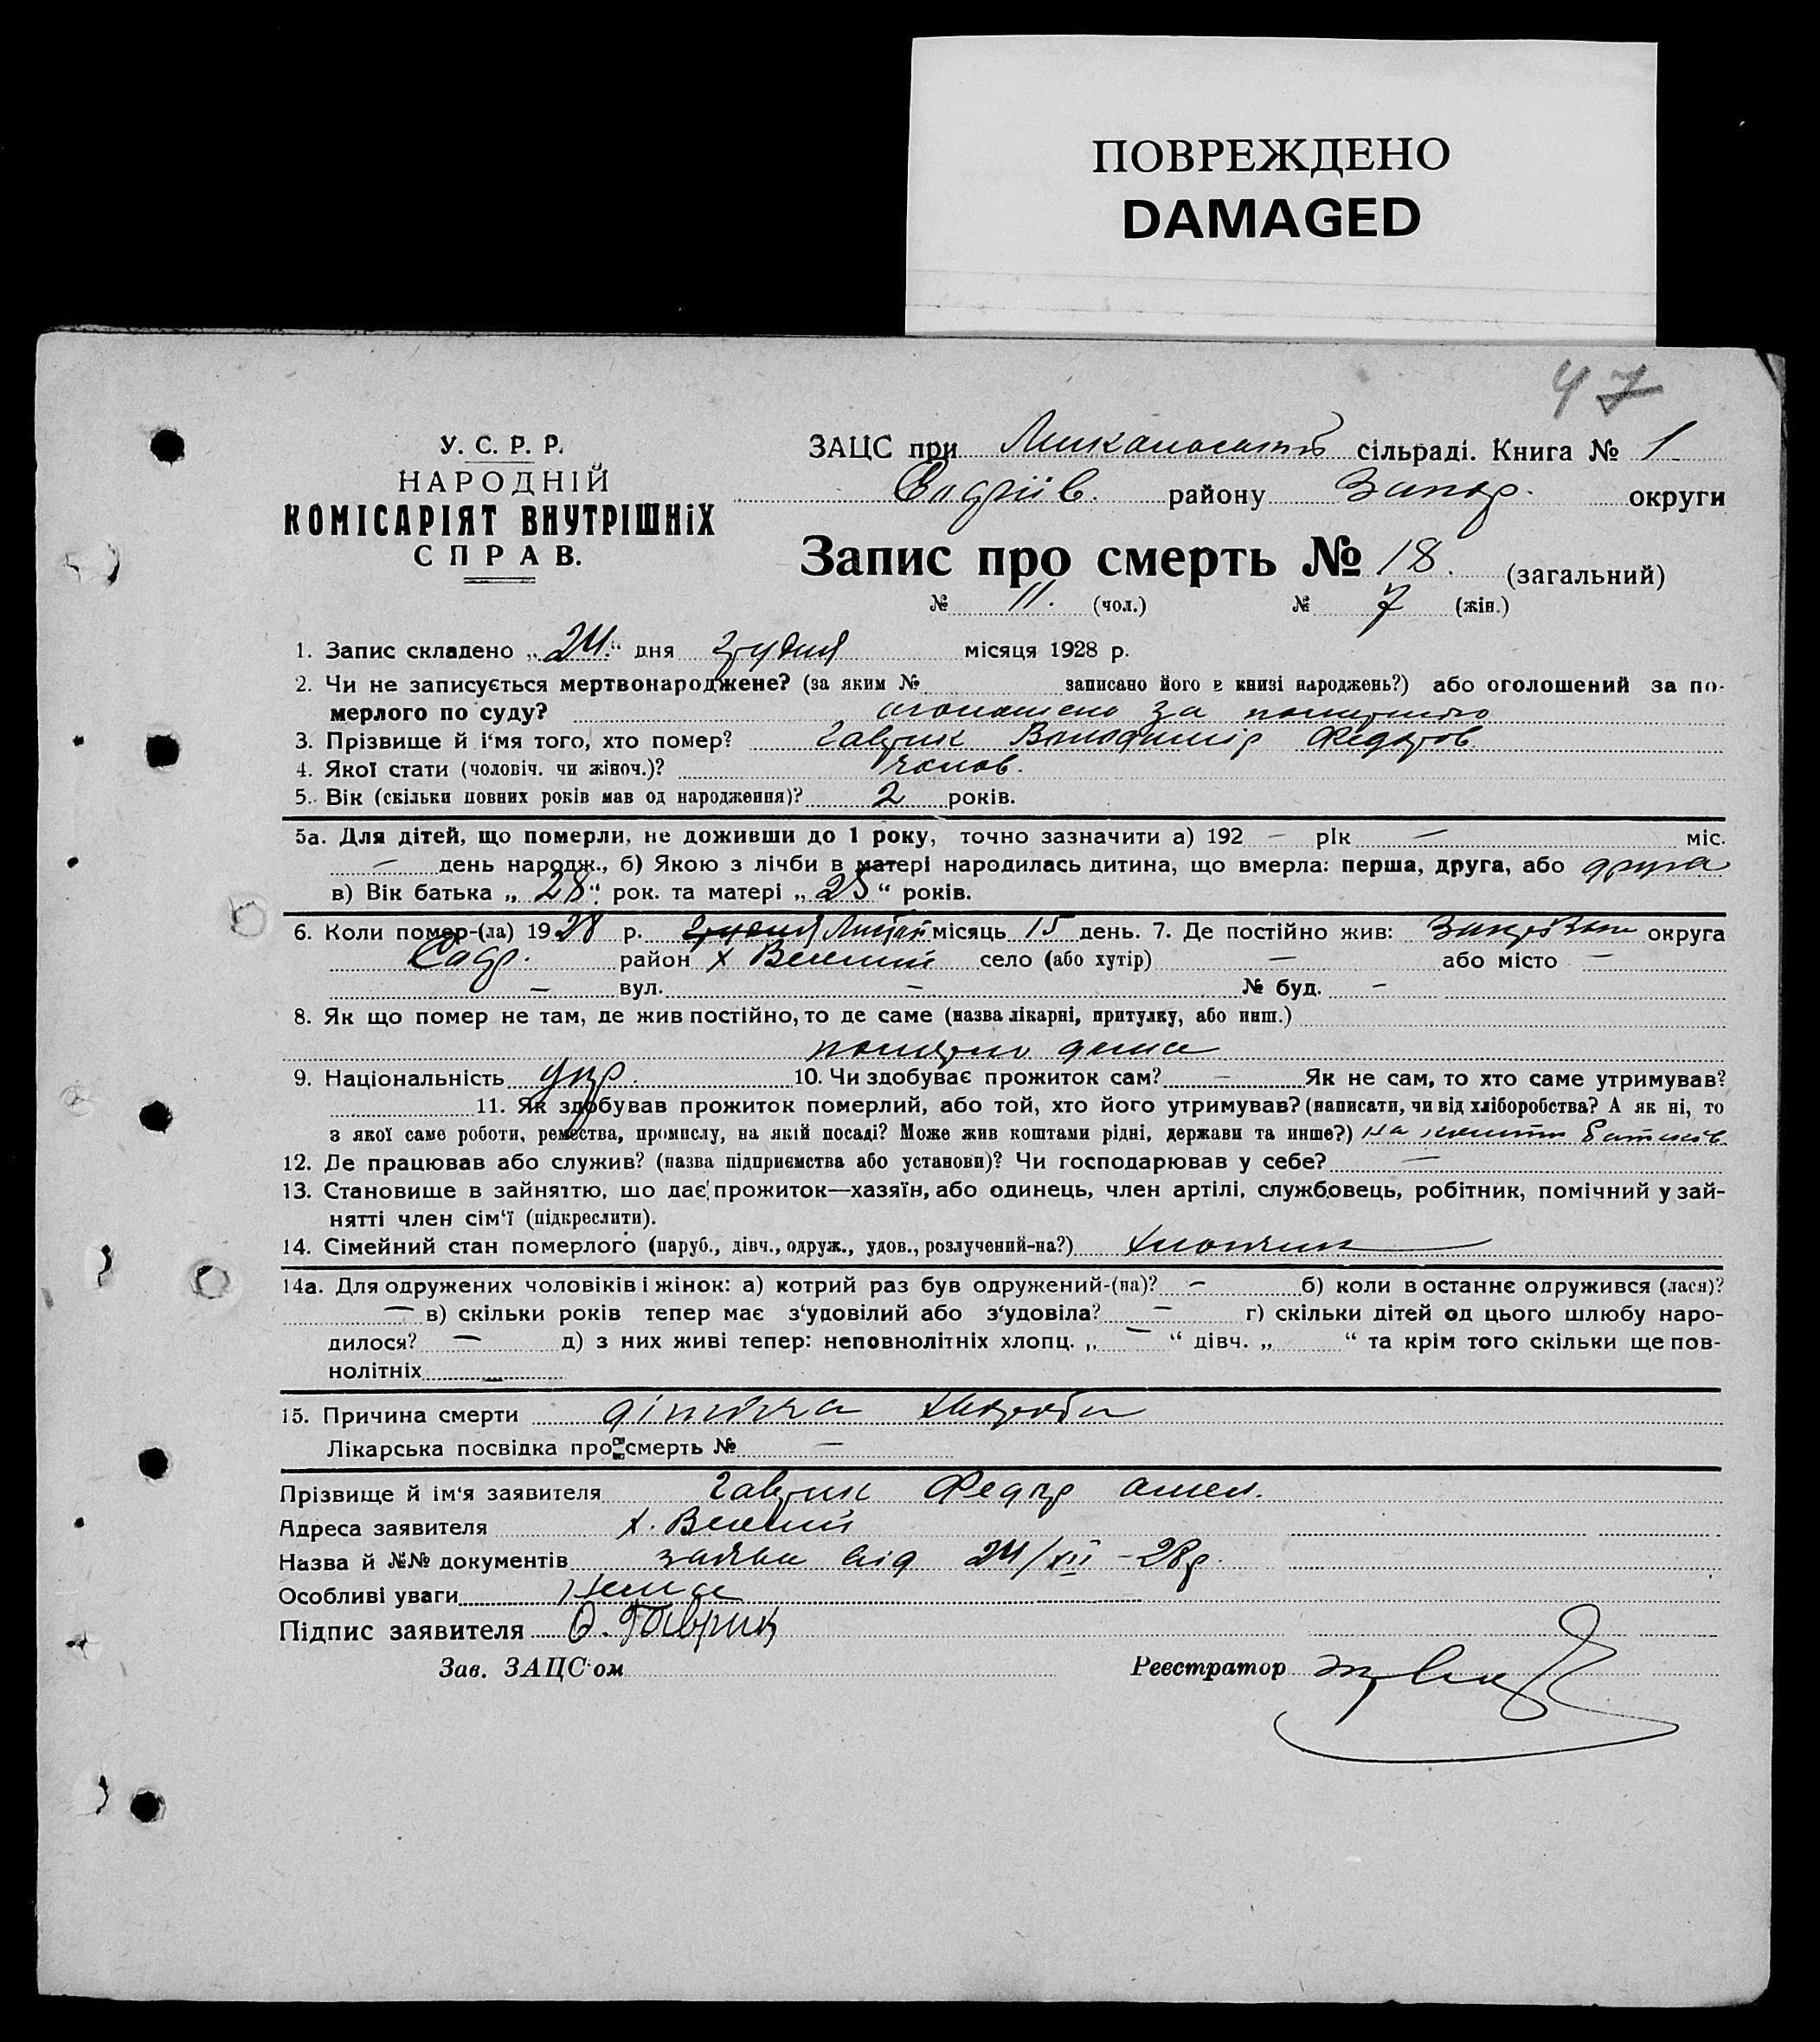 ПОВРЕЖДЕНО
DAMAGED
47
У. С. Р. Р.
НАРОДНІЙ
КОМІСАРІЯТ ВНУТРІШНІХ
СПРАВ.
ЗАЦС при сільраді. Книга № 1
району Запор. округи
Запис про смерть № 18. (загальний)
№ 11. (чол.) № 7 (жін.)
1. Запис складено „24.“ дня грудня місяця 1928 р.
2. Чи не записується мертвонароджене? (за яким № записано його в книзі народжень?) або оголошений за по-
мерлого по суду? оголошено за померлого
3. Прізвище й і'мя того, хто помер? Гаврик Володимир Федоров.
4. Якої стати (чоловіч. чи жіноч.)? чолов.
5. Вік (скільки повних років мав од народження)? 2 років.
5а. Для дітей, що померли, не доживши до 1 року, точно зазначити а) 192 — рік — міс.
— день народж., б) Якою з лічби в матері народилась дитина, що вмерла: перша, друга, або друга
в) Вік батька „28“ рок. та матері „25“ років.
6. Коли помер-(ла) 1928 р. грудня Листоп місяць 15 день. 7. Де постійно жив: округа
район х Веселий село (або хутір) — або місто —
— вул. — № буд. —
8. Як що помер не там, де жив постійно, то де саме (назва лікарні, притулку, або инш.)
померло дома
9. Національність укр. 10. Чи здобуває прожиток сам? — Як не сам, то хто саме утримував?
11. Як здобував прожиток померлий, або той, хто його утримував? (написати, чи від хліборобства? А як ні, то
з якої саме роботи, ремества, промислу, на якій посаді? Може жив коштами рідні, держави та инше?) на кошти батьків
12. Де працював або служив? (назва підприємства або установи)? Чи господарював у себе? —
13. Становище в зайняттю, що дає прожиток—хазяїн, або одинець, член артілі, службовець, робітник, помічний у зай-
нятті член сім'ї (підкреслити).
14. Сімейний стан померлого (паруб., дівч., одруж., удов., розлучений-на?) хлопчик
14а. Для одружених чоловіків і жінок: а) котрий раз був одружений-(на)? — б) коли в останнє одружився (лася)?
— в) скільки років тепер має з'удовілий або з'удовіла? — г) скільки дітей од цього шлюбу наро-
дилося? — д) з них живі тепер: неповнолітніх хлопц. „—“ дівч. „ “ та крім того скільки ще пов-
нолітніх —
15. Причина смерти дітяча хвороба
Лікарська посвідка про смерть № —
Прізвище й ім'я заявителя Гаврик Федор
Адреса заявителя х. Веселий
Назва й №№ документів заява від 24/XII – 28р.
Особливі уваги Нема
Підпис заявителя Ф. Гаврик
Зав. ЗАЦС'ом Реєстратор